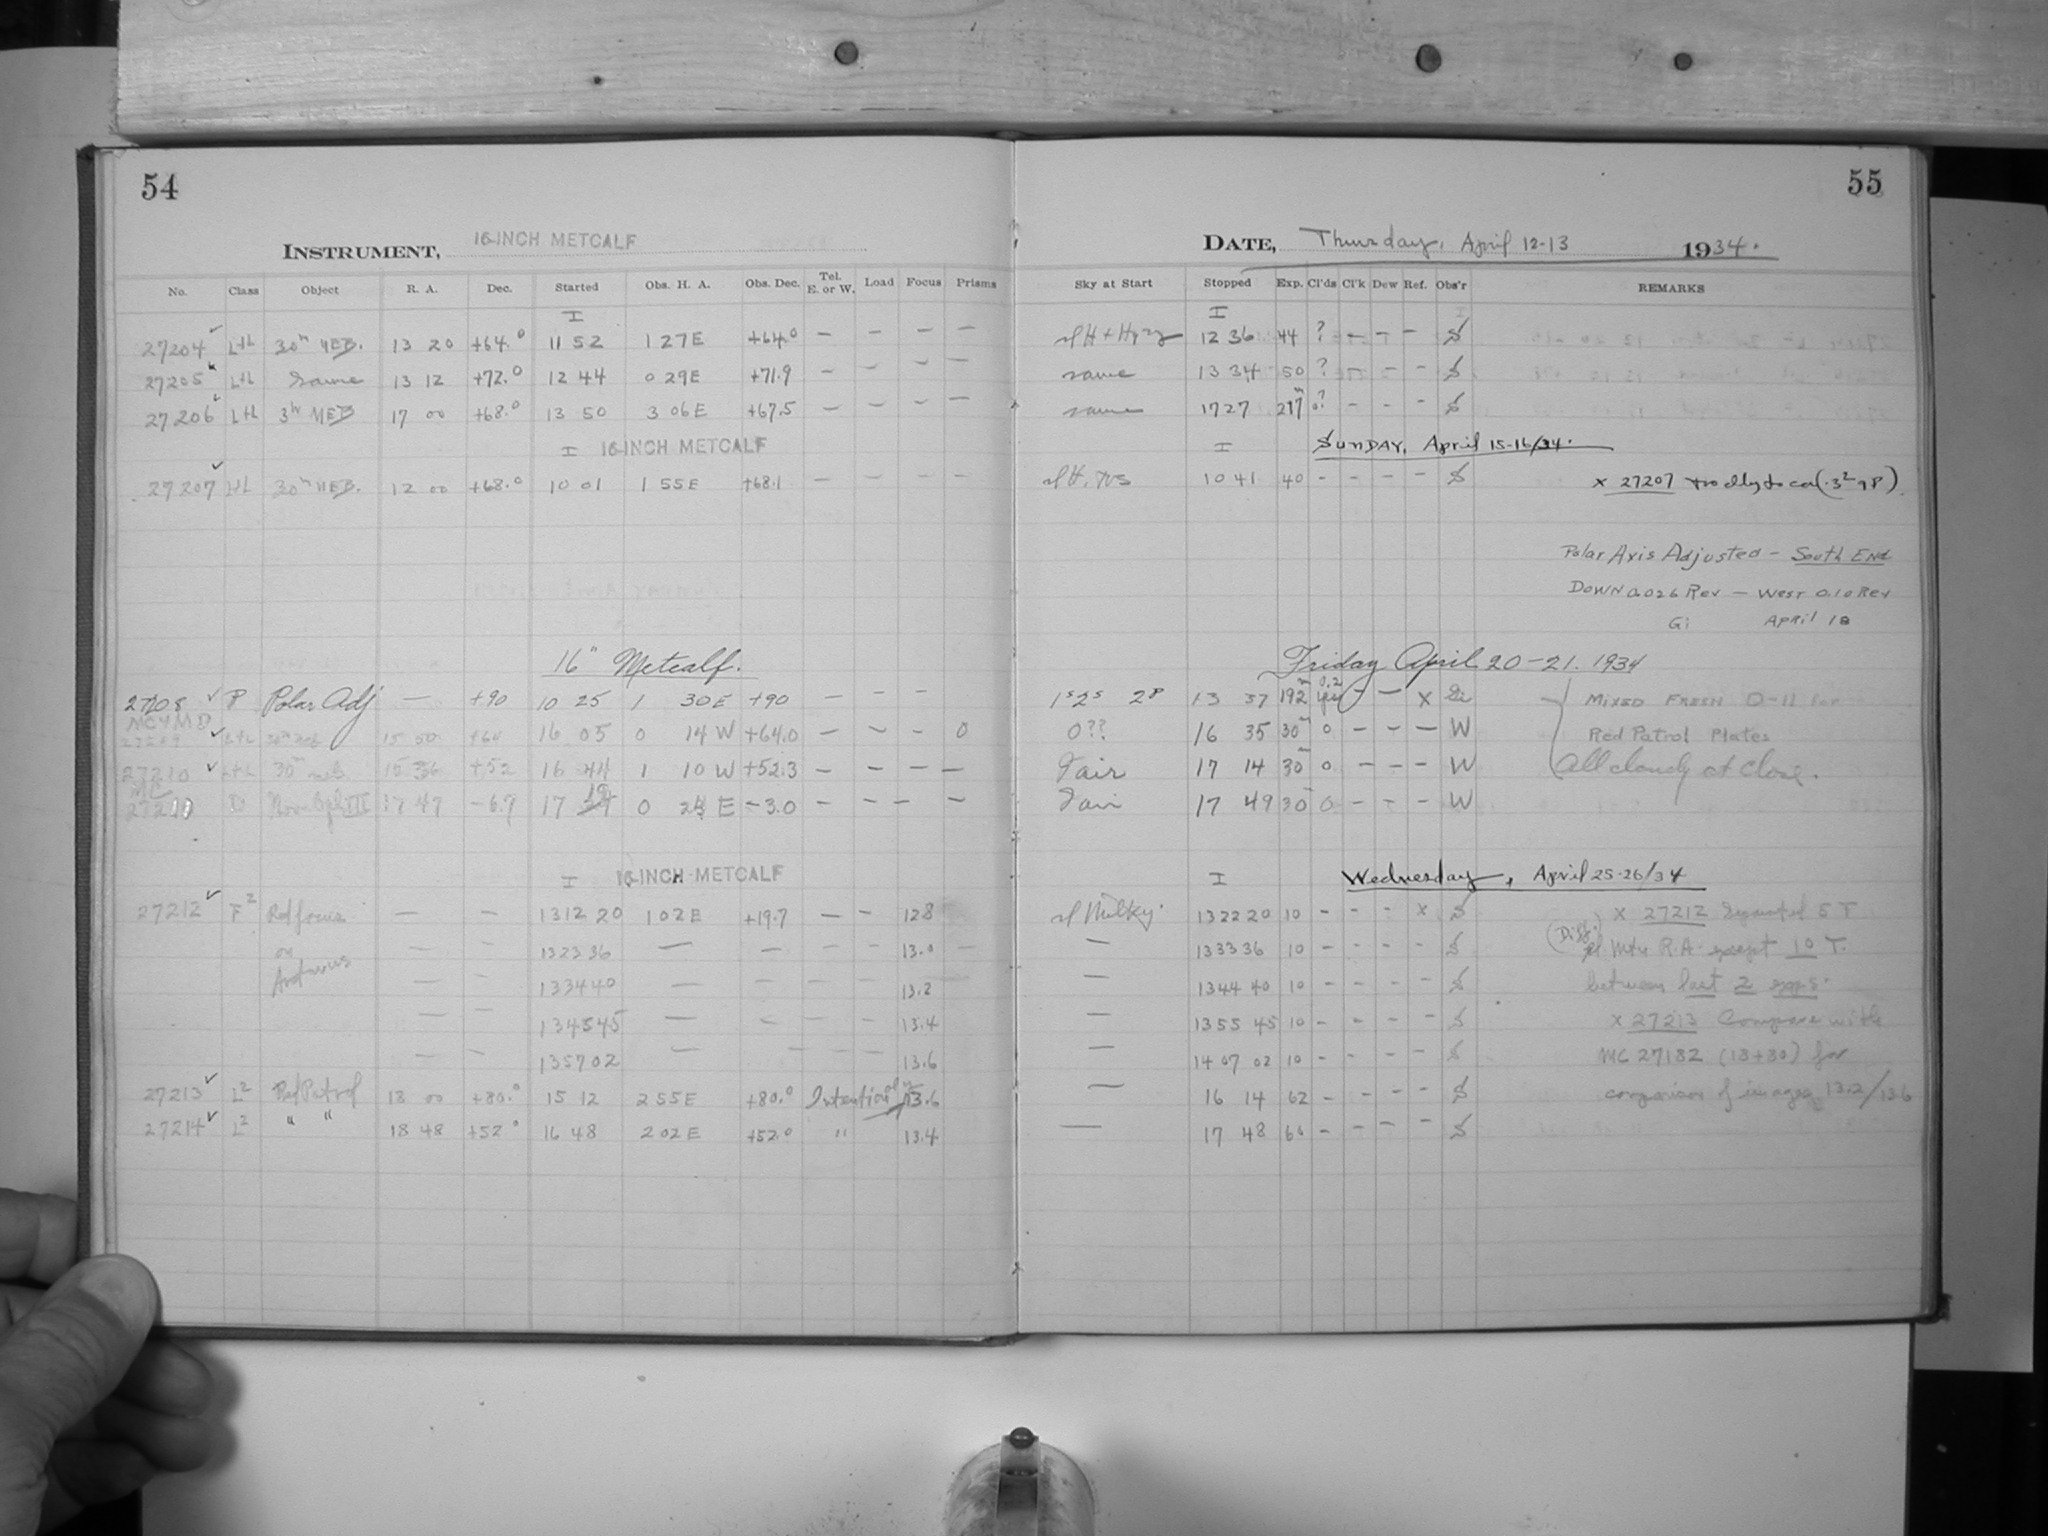 54
INSTRUMENT, 16-INCH METCALF
No. Class Object R. A. Dec. Started Obs. H. A. Obs. Dec. Tel. E. or W. Load Focus Prisms
I
27204 ✓ L+L 30m NEB. 13 20 +64.0 11 52 1 27 E +64.0 — — — —
27205 L+L Same 13 12 +72.0 12 44 0 29 E +71.9 — —
27206 L+L 3hr NEB 17 00 +68.0 13 50 3 06 E +67.5 — — — —
I 16-INCH METCALF
27207 ✓ L+L 30m NEB. 12 00 +68.0 10 01 1 55 E +68.1 — — — —
16" Metcalf.
27208 ✓ P Polar Adj — +90 10 25 1 30 E +90 — — —
27209 ✓ L+L 30m neb 15 50 +64 16 05 0 14 W +64.0 — — — 0
27210 ✓ L+L 30m neb. 15 36 +52 16 44 1 10 W +52.3 — — — —
MC
27211 D Nova Oph III 17 47 -6.7 17 19 0 24 E -3.0 — — — —
I 16-INCH METCALF
27212 ✓ F2 Ref focus — — 13 12 20 1 02 E +19.7 — — 128
on — — 13 23 36 — — — — 13.0 —
Arcturus — — 13 34 40 — — — — 13.2
— — 13 45 45 — — — — 13.4
— — 13 57 02 — — — — 13.6
27213 ✓ L2 Red Patrol 18 00 +80.0 15 12 2 55 E +80.0 Intentional 13.6
27214 ✓ L2 " " 18 48 +52.0 16 48 2 02 E +52.0 " 13.4
55
DATE, Thursday, April 12-13 1934.
Sky at Start Stopped Exp. Cl'ds Cl'k Dew Ref. Obs'r REMARKS
I
12 36 44 ? — — — S
same 13 34 50 ? — — — S
same 17 27 217m 0? — — — S
I SUNDAY, April 15-16/34.
10 41 40 — — — — S x 27207
Polar Axis Adjusted — South End
DOWN 0.026 Rev — West 0.10 Rev
Gi April 18
Friday April 20-21. 1934
1s2s 2P 13 37 192m 0.2 — — x Gi MIXED FRESH D-11 for
0?? 16 35 30m 0 — — — W Red Patrol Plates
Fair 17 14 30m 0 — — — W All cloudy at close.
Fair 17 49 30m 0 — — — W
I Wednesday, April 25-26/34
sl Milky. 13 22 20 10 — — — x S x 27212 Separated 5 T
— 13 33 36 10 — — — — S (Diff.) R.A. except 10 T.
— 13 44 40 10 — — — — S between last 2 exps.
— 13 55 45 10 — — — — S x 27213 Compare with
— 14 07 02 10 — — — — S MC 27182 (18+80) for
— 16 14 62 — — — — S comparison of images 13.2/13.6
— 17 48 60 — — — — S